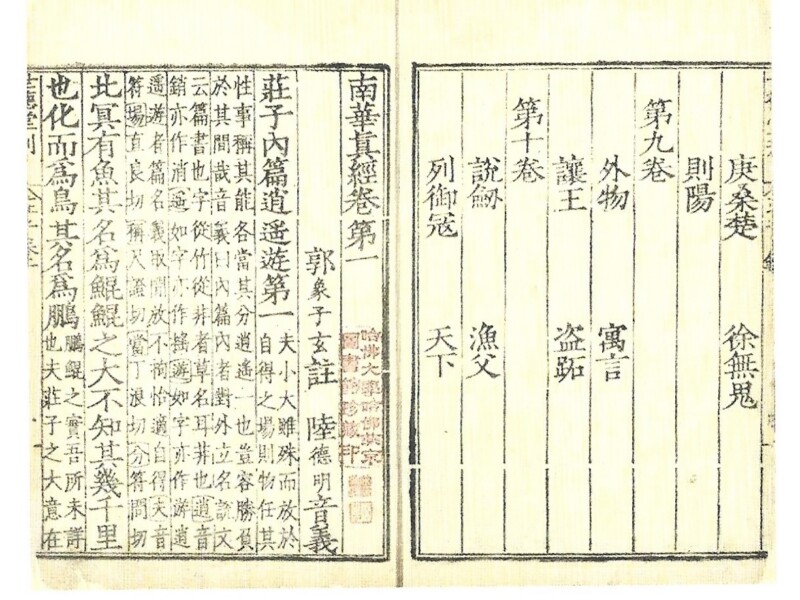 庚桑楚 徐無鬼
則陽
第九卷
外物 寓言
讓王 盗跖
第十卷
說劔 漁父
列御冦 天下
南華眞經卷第一
郭象子玄註 陸德明音義
莊子內篇逍遥遊第一
夫小大雖殊而放於
自得之場則物任其
性事稱其能各當其分逍遥一也豈容勝負
於其間哉音義曰內篇內者對外立名說文
云篇書也字從竹從艸者草名耳非也逍音
銷亦作消遥如字亦作揺遊如字亦作游逍
遥遊者篇名義取閒放不拘怡適自得夫音
符場直良切稱尺證切當丁浪切分符問切
北冥有魚其名爲鯤鯤之大不知其幾千里
也化而爲鳥其名爲鵬
鵬鯤之實吾所未詳
也夫莊子之大意在
哈佛大學哈佛燕京
圖書館珍藏印